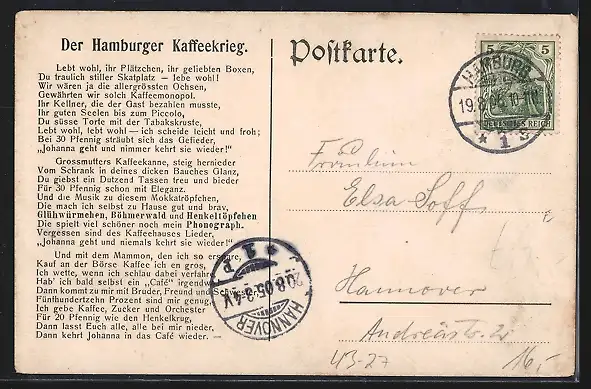 Der Hamburger Kaffeekrieg.
Lebt wohl, ihr Plätzchen, ihr geliebten Boxen,
Du traulich stiller Skatplatz — lebe wohl!
Wir wären ja die allergrössten Ochsen,
Gewährten wir solch Kaffeemonopol.
Ihr Kellner, die der Gast bezahlen musste,
Ihr guten Seelen bis zum Piccolo,
Du süsse Torte mit der Tabakskruste,
Lebt wohl, lebt wohl — ich scheide leicht und froh;
Bei 30 Pfennig sträubt sich das Gefieder,
„Johanna geht und nimmer kehrt sie wieder!“
Grossmutters Kaffeekanne, steig hernieder
Vom Schrank in deines dicken Bauches Glanz,
Du giebst ein Dutzend Tassen treu und bieder
Für 30 Pfennig schon mit Eleganz.
Und die Musik zu diesem Mokkatröpfchen,
Die mach ich selbst zu Hause gut und brav,
Glühwürmchen, Böhmerwald und Henkeltöpfchen
Die spielt viel schöner noch mein Phonograph.
Vergessen sind des Kaffeehauses Lieder,
„Johanna geht und niemals kehrt sie wieder!“
Und mit dem Mammon, den ich so erspare,
Kauf an der Börse Kaffee ich en gros,
Ich wette, wenn ich schlau dabei verfahre
Hab' ich bald selbst ein „Café“ irgendwo
Dann kommt zu mir mit Bruder, Freund und
Fünfhundertzehn Prozent sind mir genug,
Ich gebe Kaffee, Zucker und Orchester
Für 20 Pfennig wie den Henkelkrug,
Dann lasst Euch alle, alle bei mir nieder,
Dann kehrt Johanna in das Café wieder. —
Postkarte.
5 5
DEUTSCHES REICH
HAMBURG
19.8.
* 1
Fräulein
Elsa
Hannover
HANNOVER
.8.05.
* 1 P
43-27
16,-